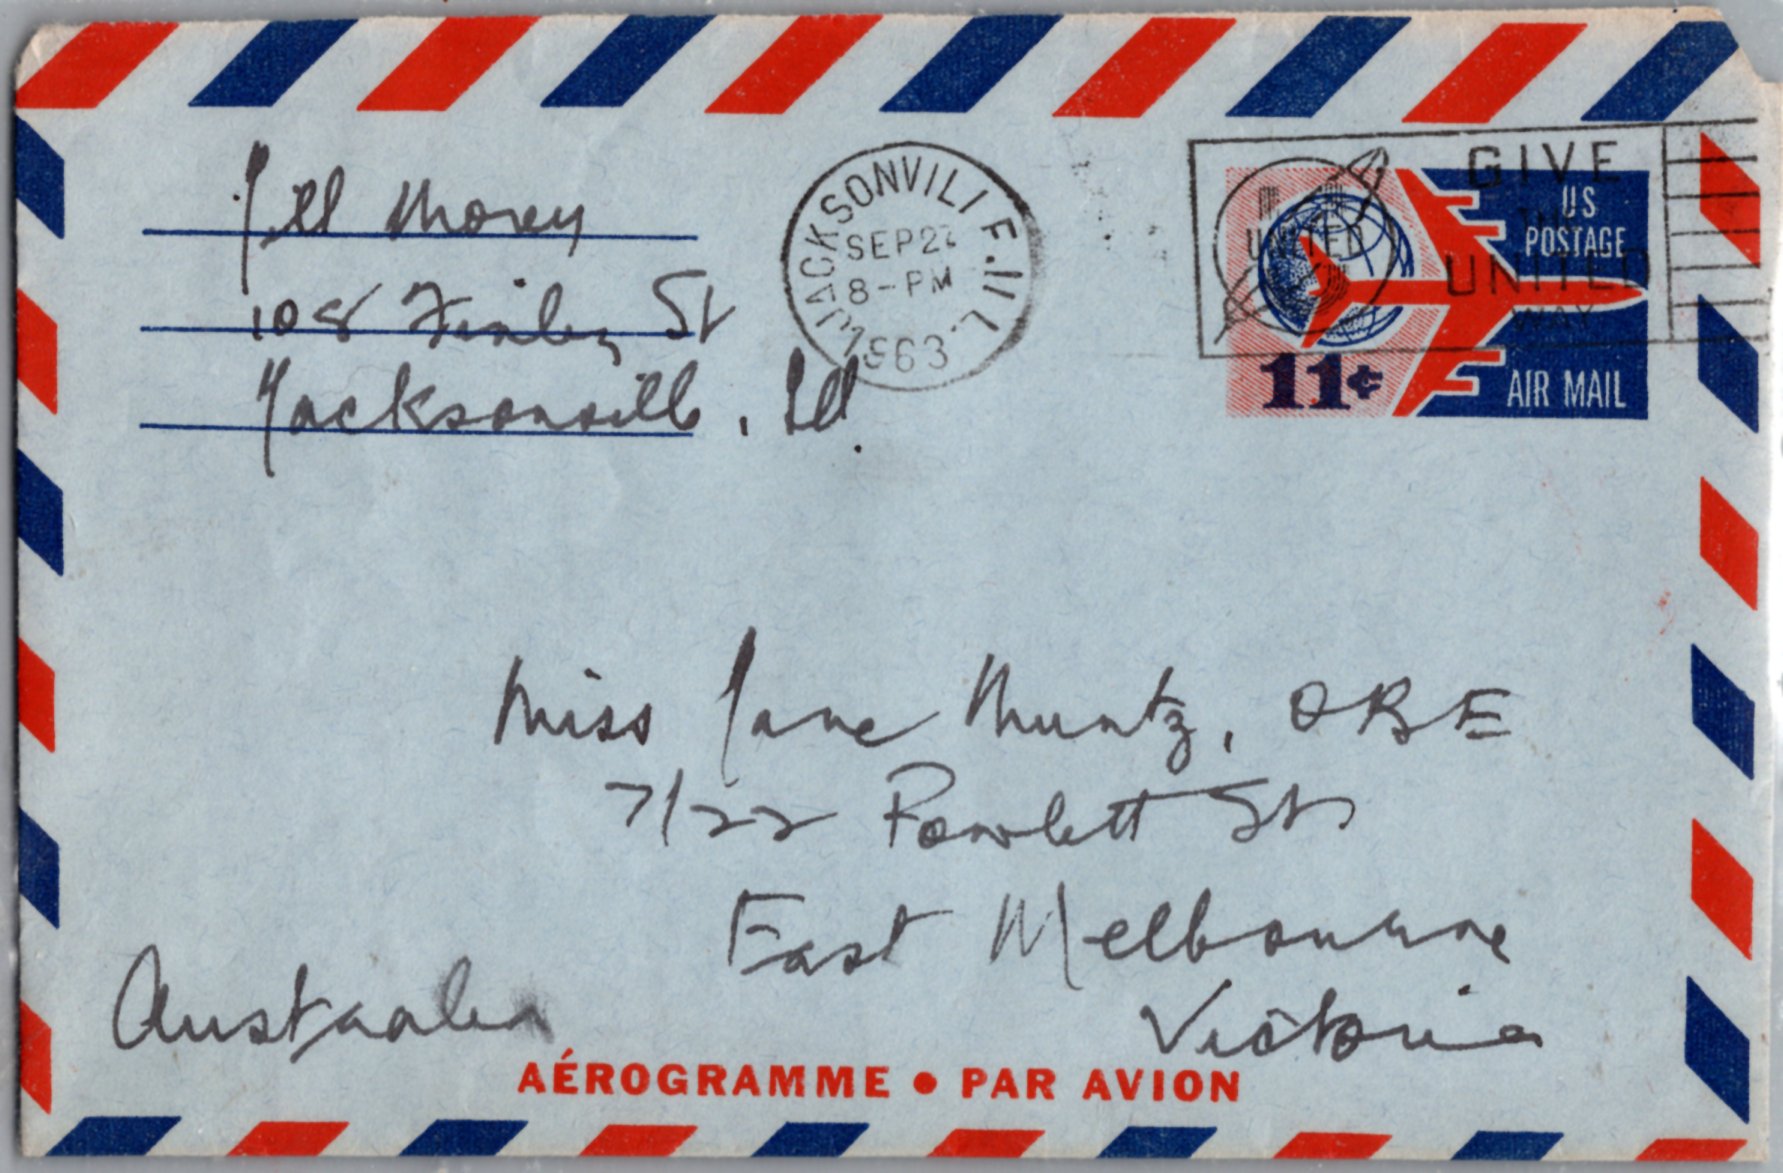 Jill Morey
108 Finley St
Jacksonville, Ill.
JACKSONVILL F. ILL.
SEP 2
8-PM
1963
UNITED
GIVE
THE
UNITED
WAY
US
POSTAGE
11¢
AIR MAIL
Miss Jane Muntz, OBE
7/22 Powlett St
East Melbourne
Victoria
Australia
AÉROGRAMME • PAR AVION